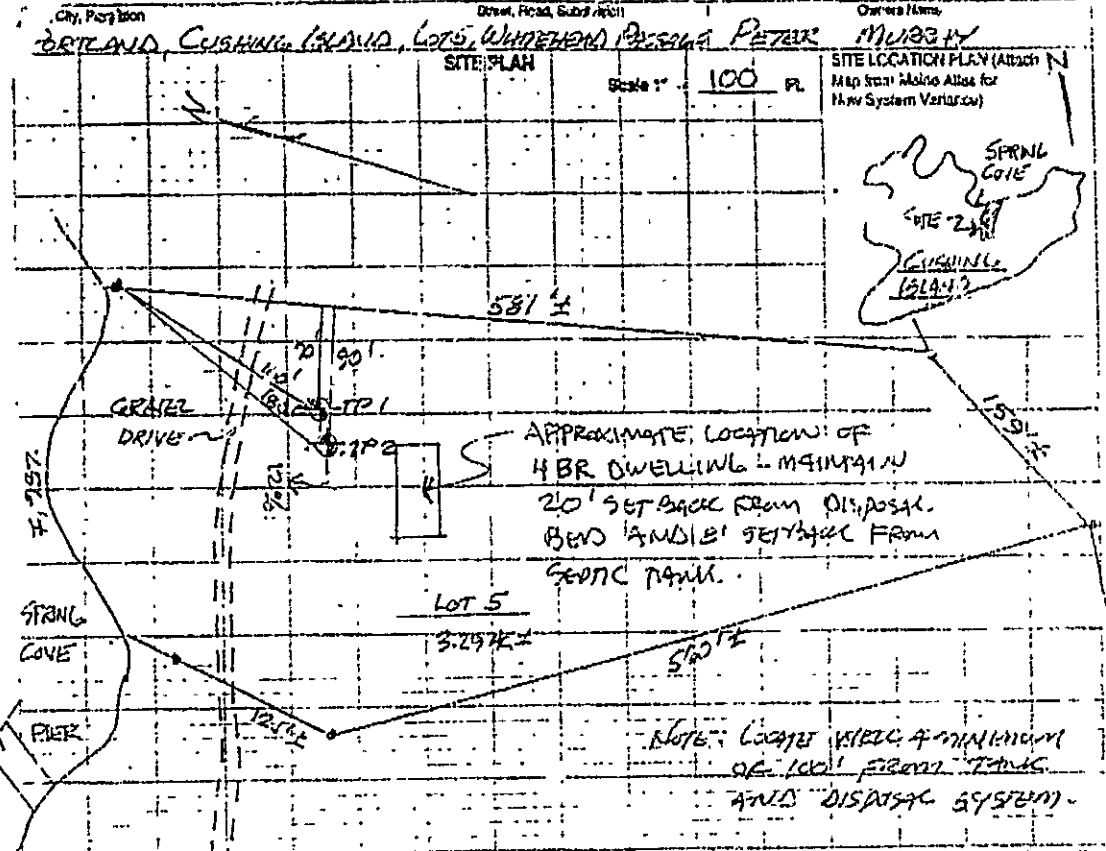 City, Plantation
Street, Road, Subdivision
Owners Name
PORTLAND, CUSHING ISLAND, LOT 5, WHITEHEAD PASSAGE PETER MURRAY
SITE PLAN
Scale 1" = 100 Ft.
SITE LOCATION PLAN (Attach
Map from Maine Atlas for
New System Variance)
N
SPRING
COVE
SITE
CUSHING
ISLAND
581'±
70'
90'
TP1
TP2
GRAVEL
DRIVE
12%
159'±
APPROXIMATE LOCATION OF
4 BR DWELLING - MAINTAIN
20' SETBACK FROM DISPOSAL
BED AND 8' SETBACK FROM
SEPTIC TANK.
LOT 5
SPRING
COVE
PIER
NOTE: LOCATE WELL A MINIMUM
OF 100' FROM TANK
AND DISPOSAL SYSTEM.